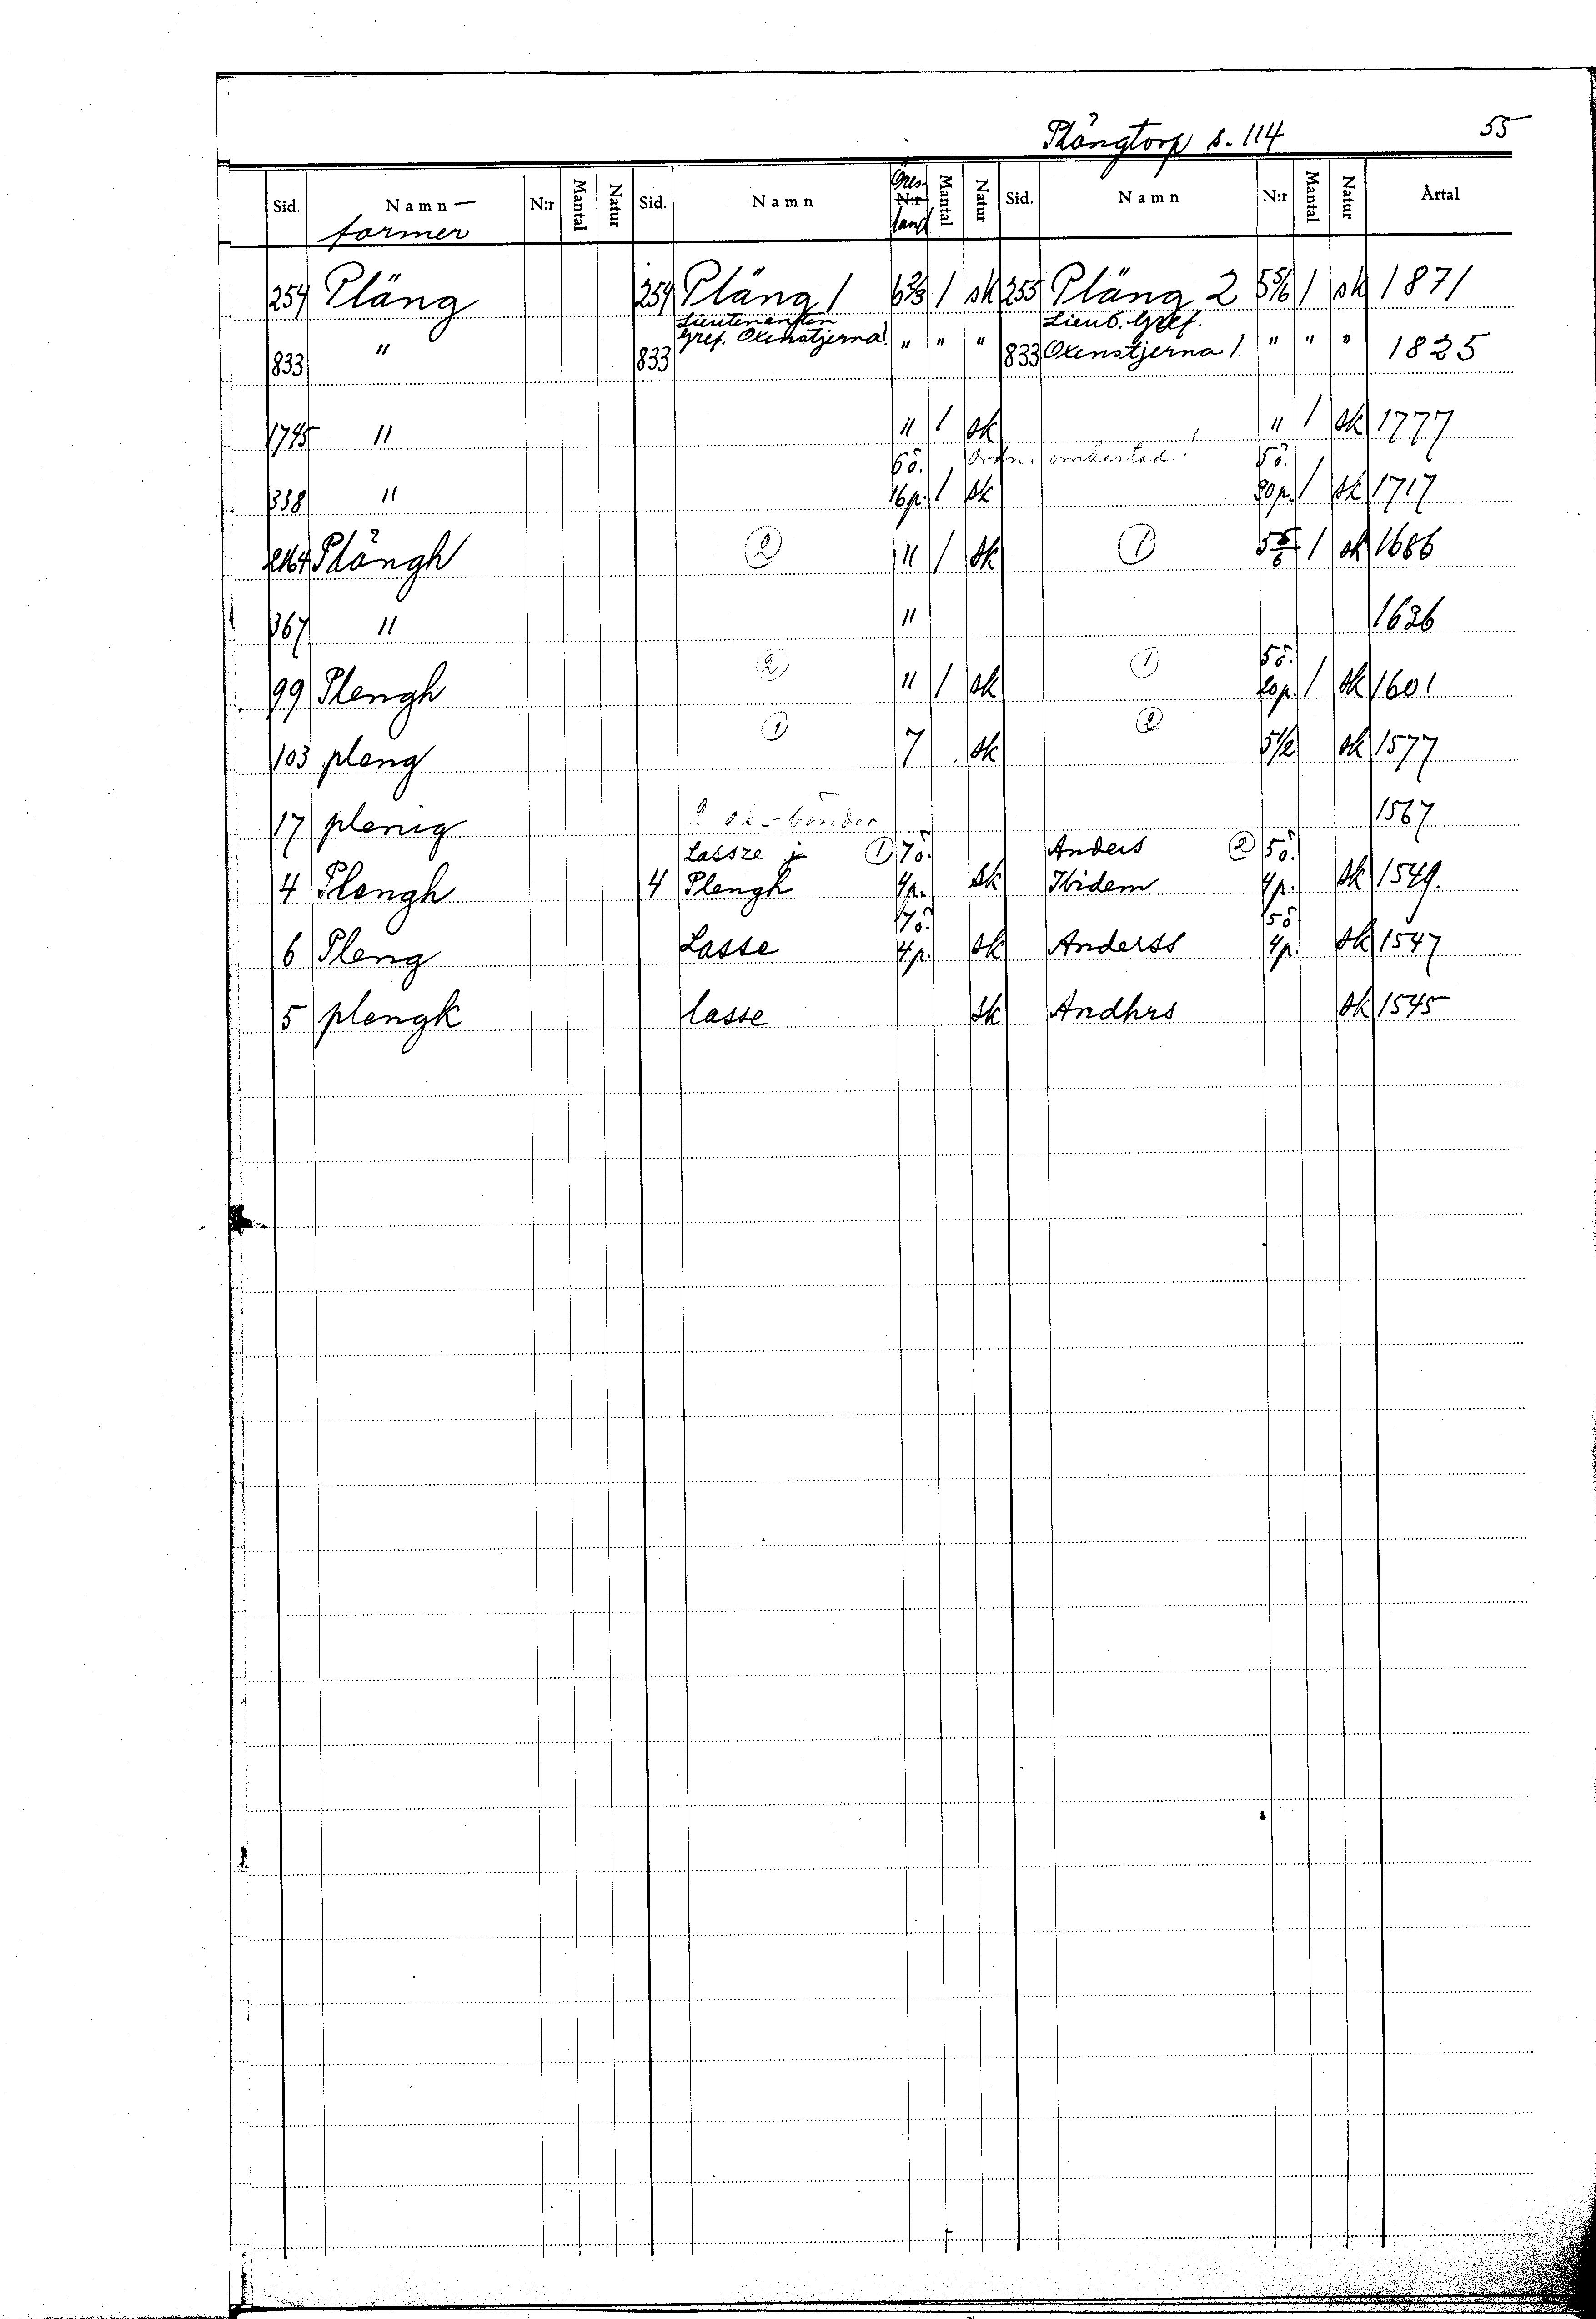 Plängtorp s. 114 55
Sid. Namn- former N:r Mantal Natur Sid. Namn Öres- N:r land Mantal Natur Sid. Namn N:r Mantal Natur Årtal
254 Pläng 254 Pläng 1 6 2/3 1 sk 255 Pläng 2 5 5/6 1 sk 1871
Lieutenanten Lieut. Gref.
833 " 833 Gref. Oxenstjerna 1. " " " 833 Oxenstjerna 1. " " " 1825
1745 " " 1 sk " 1 sk 1777
6ö. Ordn. omkastad! 5ö.
338 " 16p. 1 sk 20p. 1 sk 1717
2164 Plängh 2 " 1 sk 1 5 5/6 1 sk 1686
367 " " 1636
2 1 5ö.
99 Plengh " 1 sk 20p. 1 sk 1601
1 2
103 pleng 7 sk 5 1/2 sk 1577
17 plenig 2 sk-bönder 1567
Lassze j 1 7ö. Anders 2 5ö.
4 Plengh 4 Plengh 4p. sk Ibidem 4p. sk 1549.
7ö. 5ö
6 Pleng Lasse 4p. sk Anderss 4p. sk 1547
5 plengk lasse sk Andhrs sk 1545